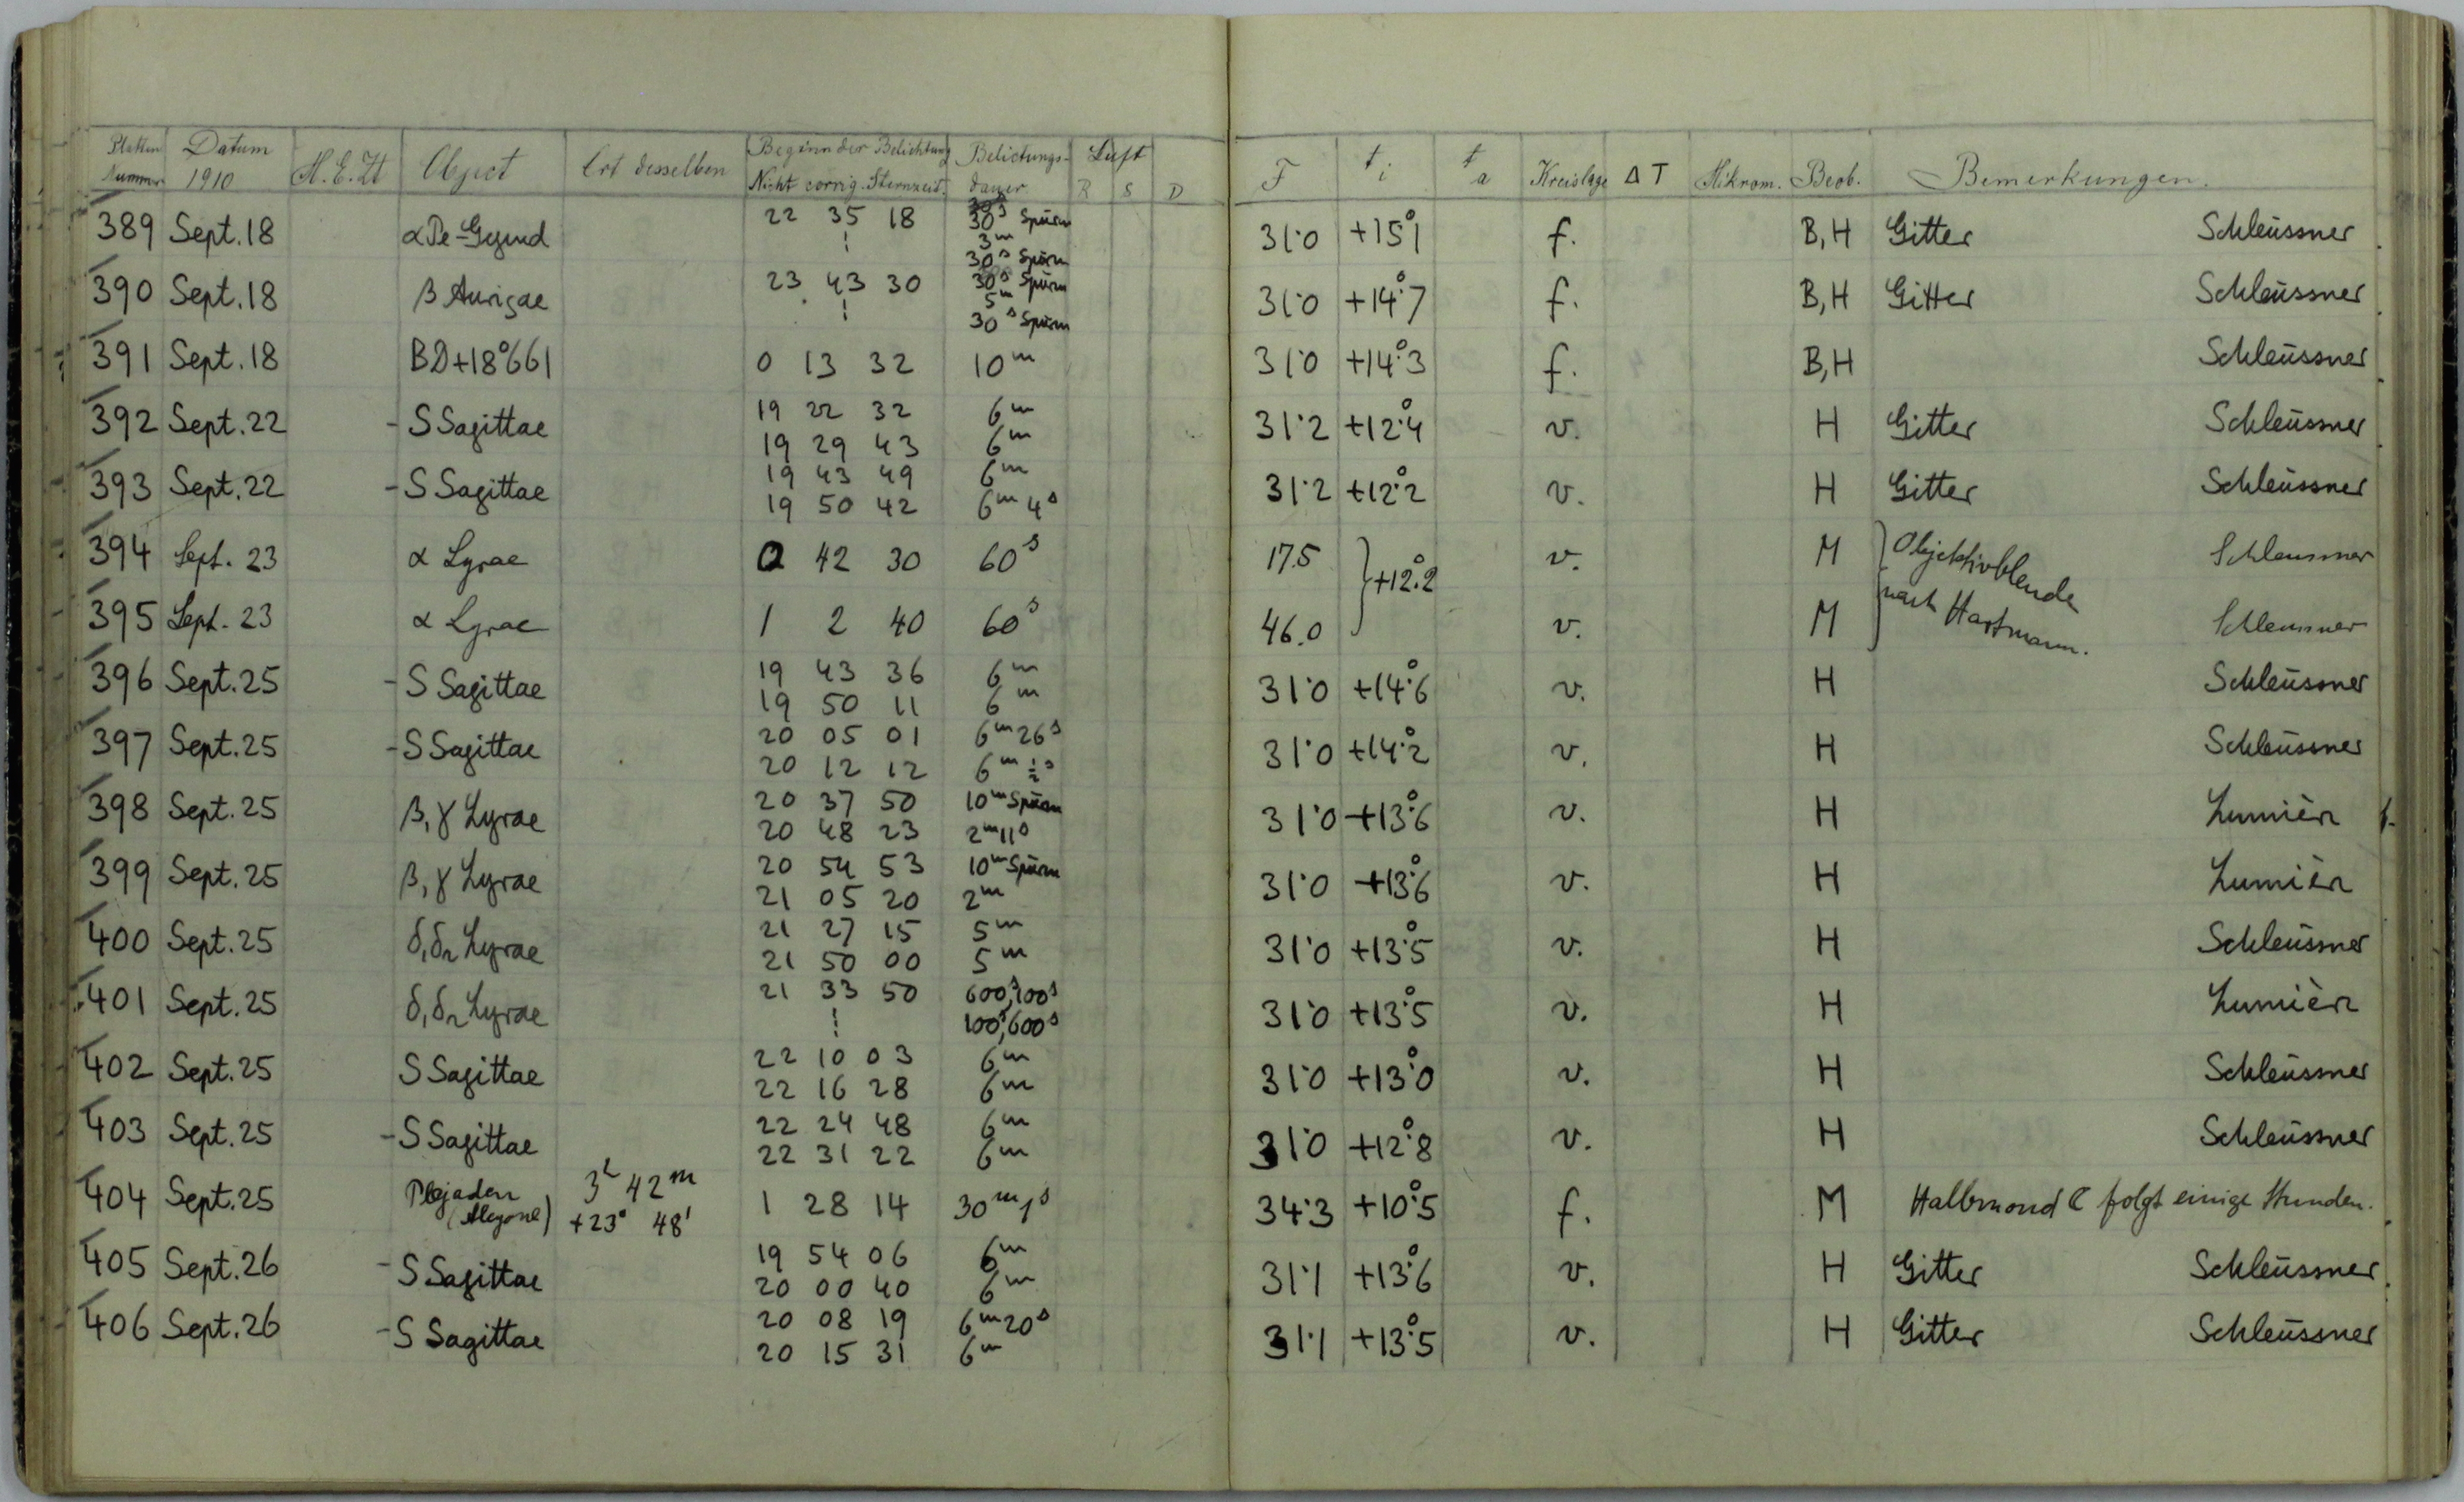 Platten Nummer Datum 1910 M.E.Zt Object Ort desselben Beginn der Belichtung Nicht corrig. Sternzeit. Belichtungs-dauer Luft R S D F t i t a Kreislage ΔT Mikrom. Beob. Bemerkungen.
389 Sept. 18 22 35 18 30s Spüren 3m 30s Spüren 31.0 +15°.1 f. B, H Gitter Schleussner
390 Sept. 18 β Aurigae 23 43 30 30s Spüren 5m 30s Spüren 31.0 +14°.7 f. B, H Gitter Schleussner
391 Sept. 18 BD+18°661 0 13 32 10m 31.0 +14°.3 f. B, H Schleussner
392 Sept. 22 - S Sagittae 19 22 32 6m 31.2 +12°.4 v. H Gitter Schleussner
19 29 43 6m
393 Sept. 22 - S Sagittae 19 43 49 6m 31.2 +12°.2 v. H Gitter Schleussner
19 50 42 6m 4s
394 Sept. 23 α Lyrae 0 42 30 60s 17.5 } +12°.2 v. M } Objektivblende nach Hartmann. Schleussner
395 Sept. 23 α Lyrae 1 2 40 60s 46.0 v. M Schleussner
396 Sept. 25 - S Sagittae 19 43 36 6m 31.0 +14°.6 v. H Schleussner
19 50 11 6m
397 Sept. 25 - S Sagittae 20 05 01 6m 26s 31.0 +14°.2 v. H Schleussner
20 12 12 6m ½s
398 Sept. 25 β, γ Lyrae 20 37 50 10m Spüren 31.0 +13°.6 v. H Lumière
20 48 23 2m 11s
399 Sept. 25 β, γ Lyrae 20 54 53 10m Spüren 31.0 +13°.6 v. H Lumière
21 05 20 2m
400 Sept. 25 δ1 δ2 Lyrae 21 27 15 5m 31.0 +13°.5 v. H Schleussner
21 50 00 5m
401 Sept. 25 δ1 δ2 Lyrae 21 33 50 600s, 100s 31.0 +13°.5 v. H Lumière
100s, 600s
402 Sept. 25 S Sagittae 22 10 03 6m 31.0 +13°.0 v. H Schleussner
22 16 28 6m
403 Sept. 25 - S Sagittae 22 24 48 6m 31.0 +12°.8 v. H Schleussner
22 31 22 6m
404 Sept. 25 Plejaden (Alcyone) 3h 42m +23° 48' 1 28 14 30m 1s 34.3 +10°.5 f. M Halbmond ☾ folgt einige Stunden.
405 Sept. 26 - S Sagittae 19 54 06 6m 31.1 +13°.6 v. H Gitter Schleussner
20 00 40 6m
406 Sept. 26 - S Sagittae 20 08 19 6m 20s 31.1 +13°.5 v. H Gitter Schleussner
20 15 31 6m